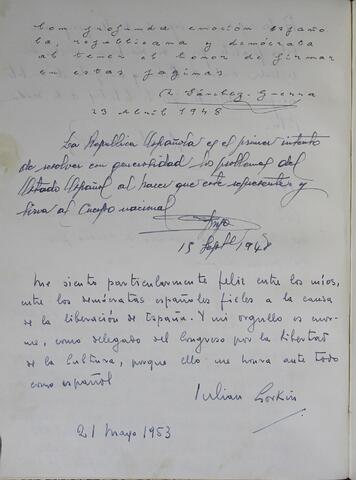 Con profunda emoción españo
la, republicana y demócrata
al tener el honor de firmar
en estas paginas
R. Sánchez-Guerra
23 Abril 1948
La República Española es el primer intento
de resolver con generosidad los problemas del
Estado Español al hacer que este represente y
sirva al Cuerpo nacional
15 Septbre 1948
Me siento particularmente feliz entre los míos,
entre los demócratas españoles fieles a la causa
de la liberación de España. Y mi orgullo es enor-
me, como delegado del Congreso por la Libertad
de la Cultura, porque ello me honra ante todo
como español
Julian Gorkin
21 Mayo 1953